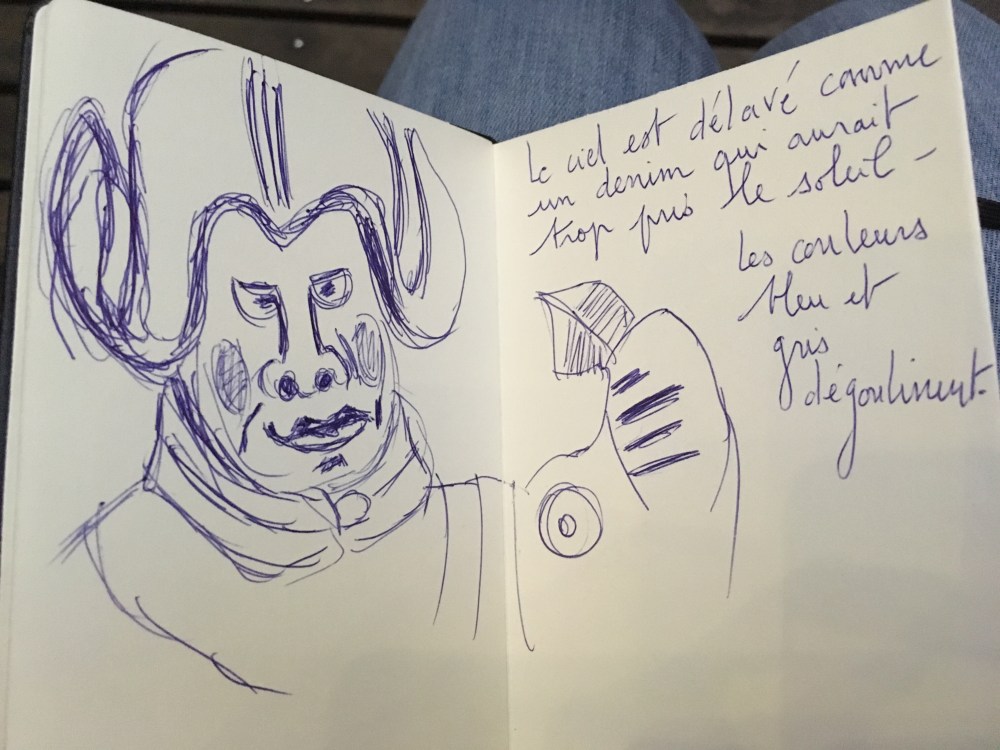 Le ciel est délavé comme
un denim qui aurait
trop pris le soleil -
Les couleurs
bleu et
gris
dégoulinent.